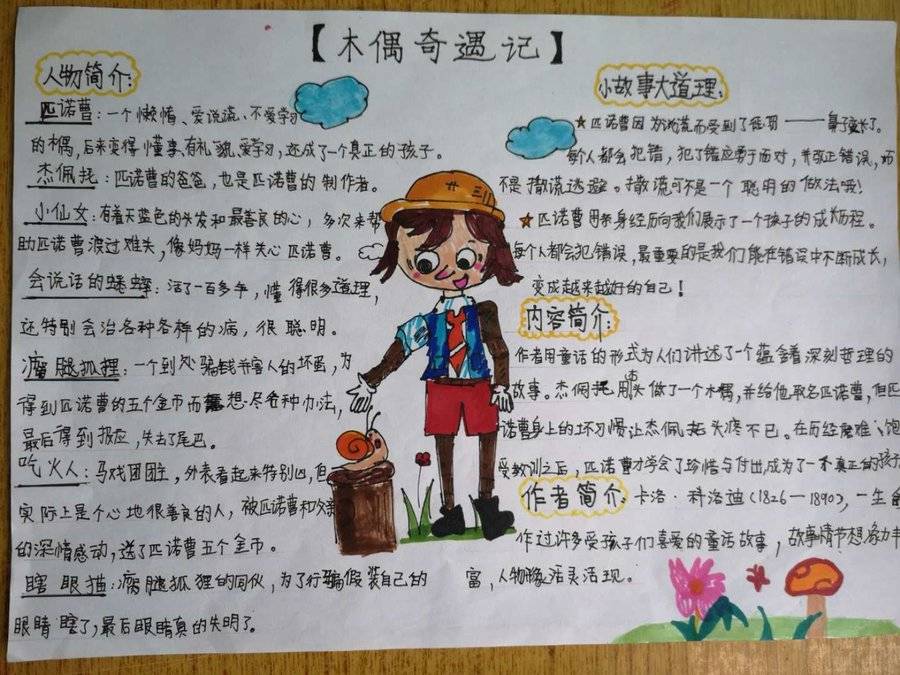 【木偶奇遇记】
人物简介:
匹诺曹:一个懒惰、爱说谎、不爱学习
的木偶,后来变得懂事、有礼貌、爱学习,还成了一个真正的孩子。
杰佩托:匹诺曹的爸爸,也是匹诺曹的制作者。
小仙女:有着天蓝色的头发和最善良的心,多次来帮
助匹诺曹渡过难关,像妈妈一样关心匹诺曹。
会说话的蟋蟀:活了一百多年,懂得很多道理,
还特别会治各种各样的病,很聪明。
瘸腿狐狸:一个到处骗钱并害人的坏蛋,为
得到匹诺曹的五个金币而想尽各种办法,
最后得到报应,失去了尾巴。
吃火人:马戏团团主,外表看起来特别凶,但
实际上是个心地很善良的人,被匹诺曹和父亲
的深情感动,送了匹诺曹五个金币。
瞎眼猫:瘸腿狐狸的同伙,为了行骗假装自己的
眼睛瞎了,最后眼睛真的失明了。
小故事大道理:
★匹诺曹因为说谎而受到了惩罚——鼻子变长了。
每个人都会犯错,犯了错应勇于面对,并改正错误,而
不是撒谎逃避。撒谎可不是一个聪明的做法哦!
★匹诺曹用亲身经历向我们展示了一个孩子的成长历程。
每个人都会犯错误,最重要的是我们能在错误中不断成长,
变成越来越好的自己!
内容简介:
作者用童话的形式为人们讲述了一个蕴含着深刻哲理的
故事。杰佩托用木头做了一个木偶,并给他取名匹诺曹,但匹
诺曹身上的坏习惯让杰佩托头疼不已。在历经磨难、饱
受教训之后,匹诺曹才学会了珍惜与付出,成为了一个真正的孩子
作者简介:卡洛·科洛迪(1826—1890),一生创
作过许多受孩子们喜爱的童话故事,故事情节想象力丰
富,人物形象活灵活现。